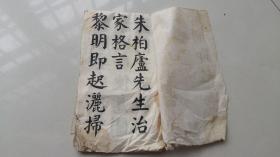 朱柏廬先生治
家格言
黎明即起灑掃